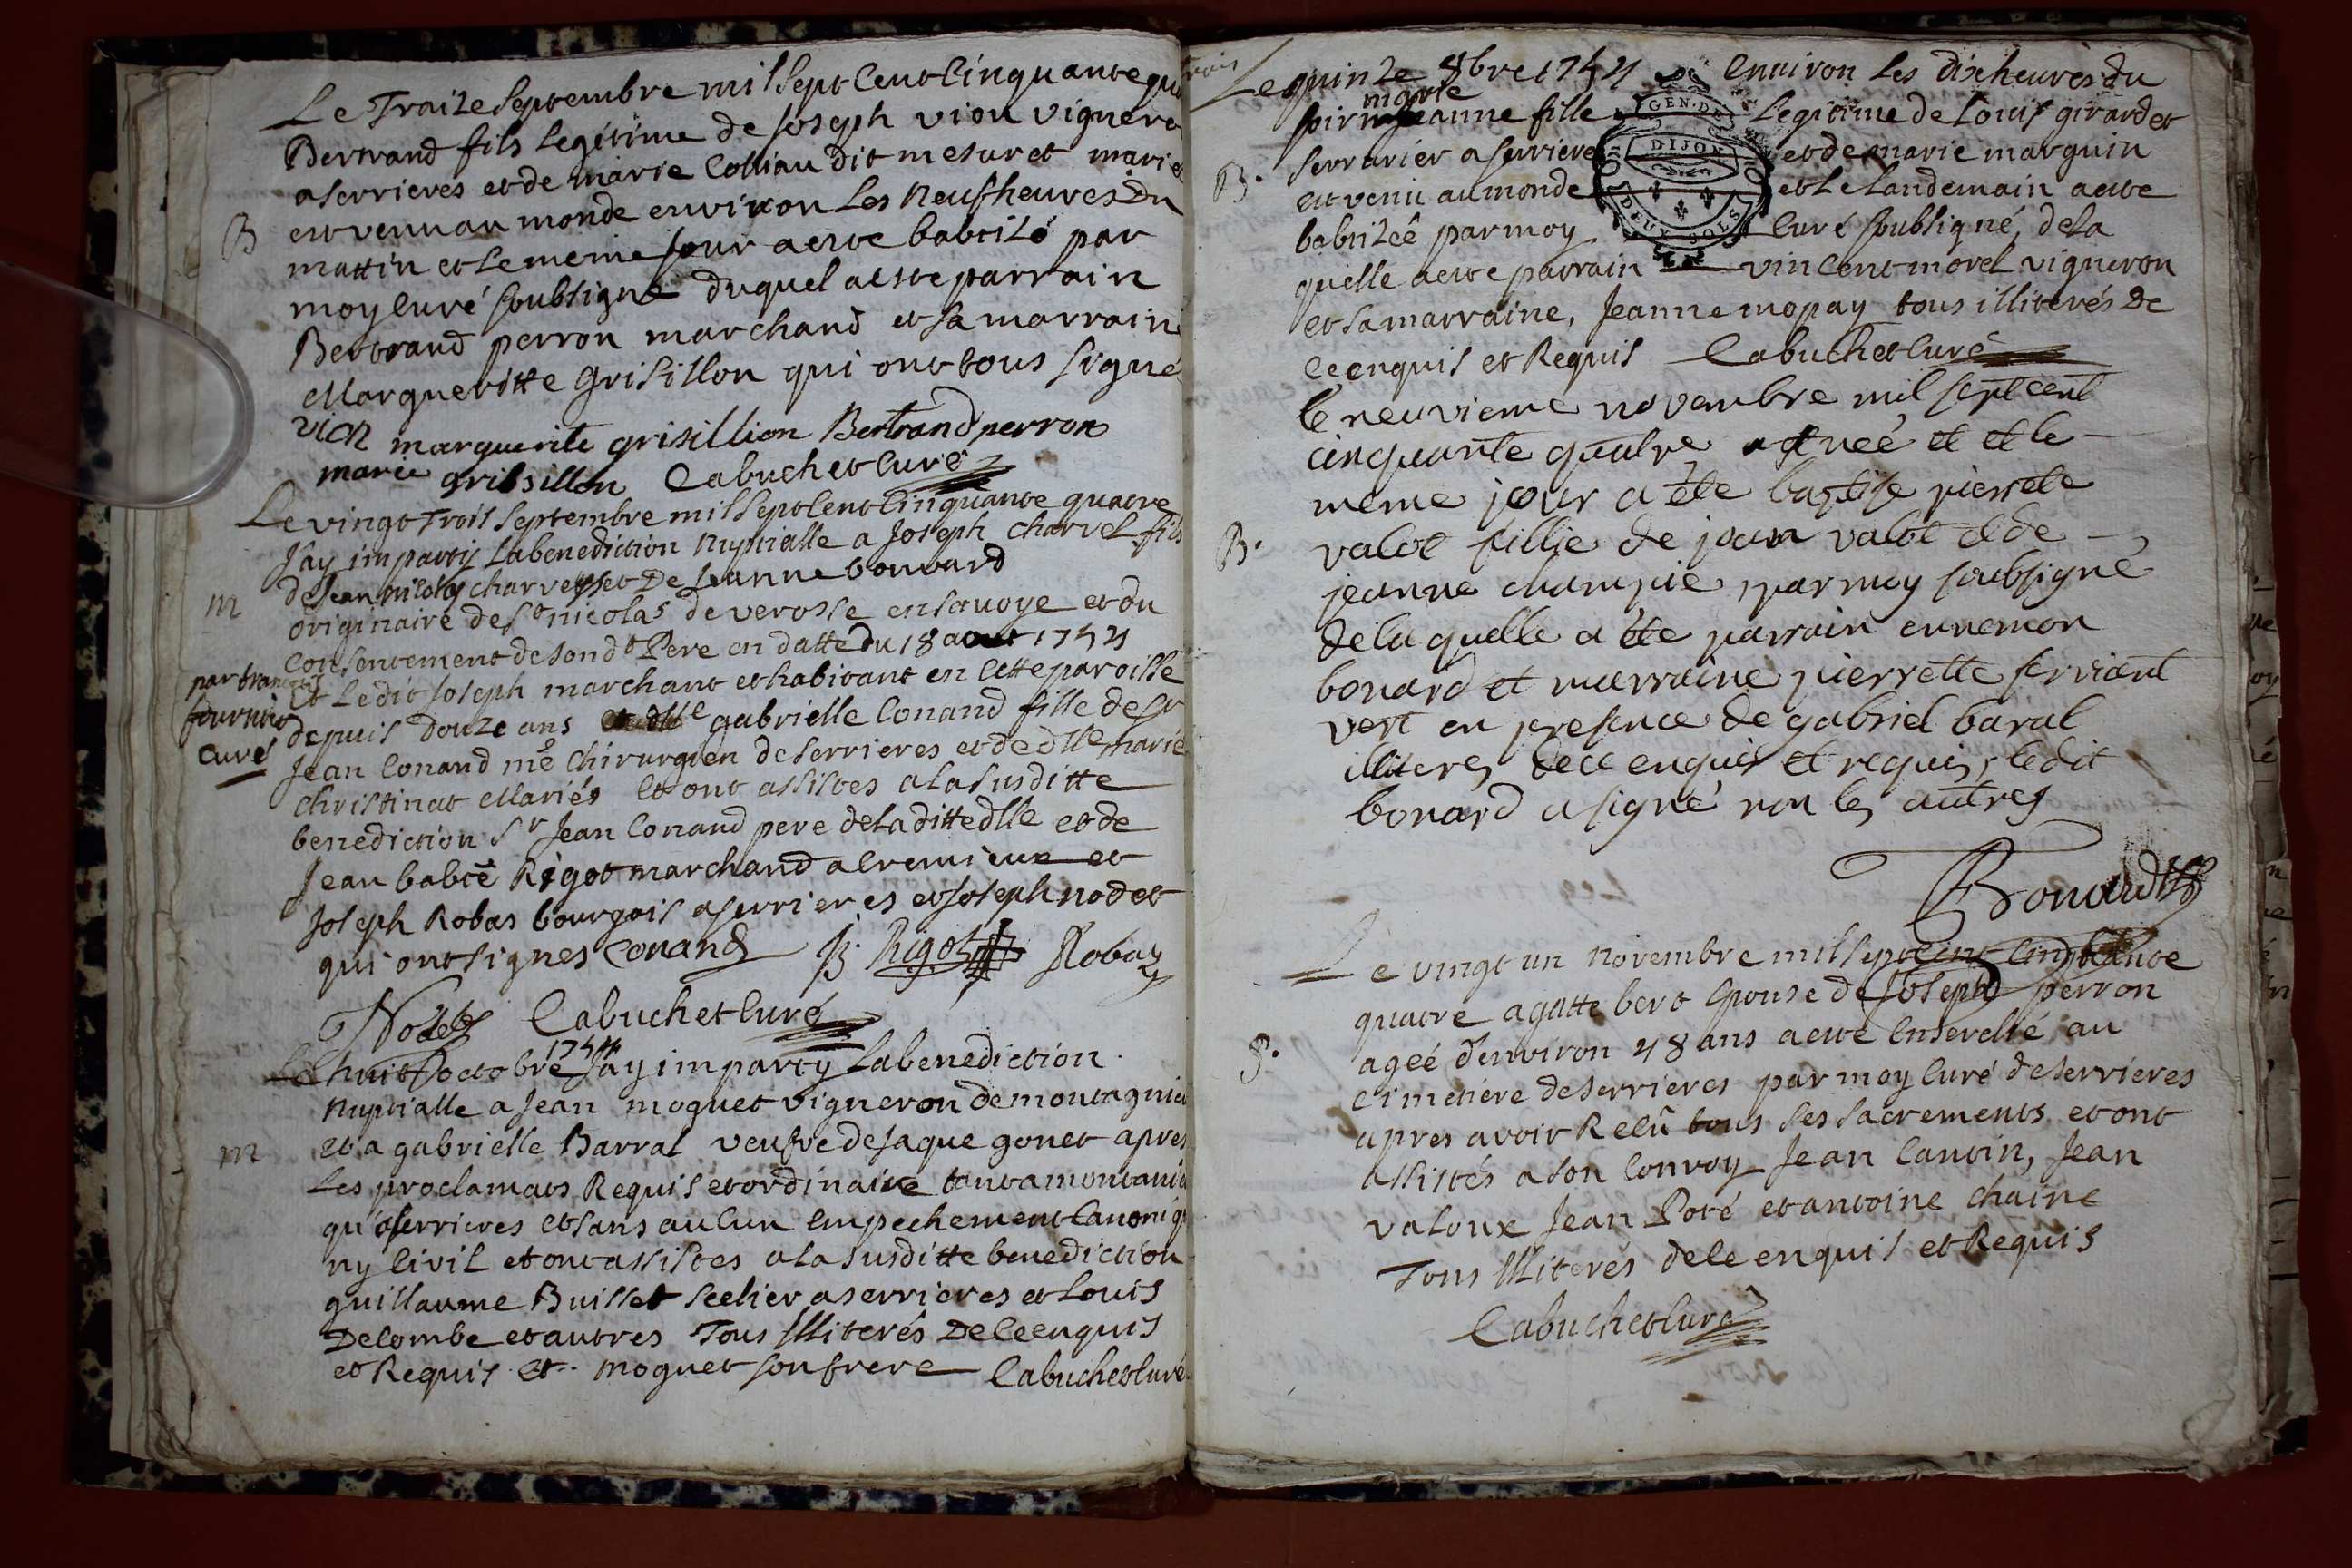 Le Traize septembre mil sept cent cinquante qu
Bertrand fils legitime de Joseph vion vignero
a serrieres et de marie Colliau dit mesuret mariés
B
est venu au monde environ les neuf heures du
mattin et le meme jour a este babtizé par
moy curé soubsigné duquel a este parrain
Bertrand perron marchand et sa marraine
Margueritte Grisillon qui ont tous signé
vion marguerite grisillion Bertrand perron
marie grilsillon Cabuchet curé
Le vingt trois septembre mil sept cent cinquante quatre
J'ay imparty la benediction nuptialle a Joseph charvet fils
m
de Jean nicolas charvet et De Jeanne bouvard
originaire de st nicolas de verosse en savoye et du
consentement de son dt Pere en datte du 18 aout 1754
par
fournier
curé
et ledit Joseph marchant et habitant en cette paroisse
depuis douze ans gabrielle Conand fille de sr
Jean Conand me chirurgien de serrieres et de dlle marie
christinat Mariés et ont assistes a la susditte
benediction sr Jean Conand pere de la ditte dlle et de
Jean babte Rigot marchand a Cremieux et
Joseph Robas bourgois a serrieres et Joseph nodet
qui ont signes Conand J. Rigot Robas
Nodet Cabuchet curé
Le huit octobre 1754 J'ay imparty la benediction
nuptialle a Jean moguet vigneron de montagnie
m
et a gabrielle Barral veufve de Jaque gonet apres
Les proclamats Requis et ordinaire tant a montanie
qu'a serrieres et sans aucun Empechement Canoniq
ny Civil et ont assistes a la susditte benediction
guillaume Buisset seelier a serrieres et Louis
Delombe et autres Tous Illiterés De ce enquis
et Requis et moguet son frere Cabuchet curé
Le quinze 8bre 1754 Environ les dix heures du
soir marie Jeanne fille Legitime de Louis girardet
B.
serrurier a serrieres et de marie marguin
est venu au monde et le landemain a este
babtizeé par moy Curé soubsigné, de la
quelle a este parrain vincent morel vigneron
et sa marraine, Jeanne mopay tous illiterés de
ce enquis et Requis Cabuchet curé
GEN. DE
DIJON
DEUX SOLS
le neuvieme novembre mil sept cent
cinquante quatre est neé et et le
meme jour a été baptise pierrete
B.
valot fillie de jean valot et de
jeanne champie, par moy soubsigné
de la quelle a été parrain ennemon
bonard et marraine pierrette servient
vert en presence de gabriel baral
illiteres de ce enquis et requis, ledit
bonard a signé non les autres
Bonard
Le vingt un novembre mil sept cent cinquante
quatre agatte bert epouse de Joseph perron
S.
ageé d'environ 48 ans a este Enserelié au
cimetiere de serrieres par moy Curé de serrieres
apres avoir Receû tous ses sacrements et ont
assistés a son convoy Jean Cantin, Jean
valoux Jean Poté et antoine chaine
Tous Illiterés de ce enquis et Requis
Cabuchet curé